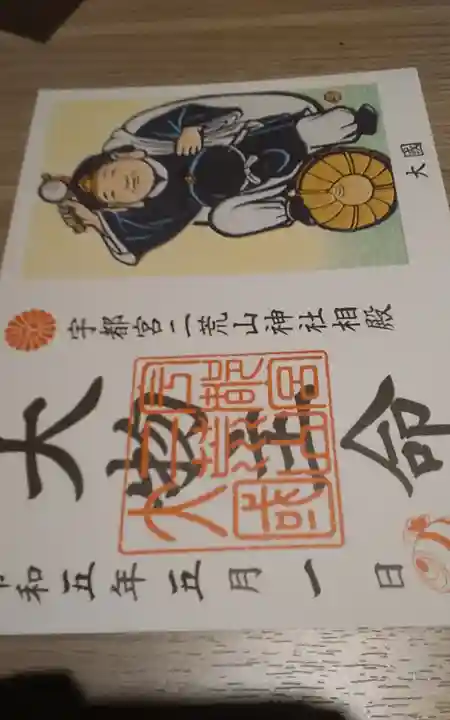 大國
宇都宮二荒山神社相殿
大物主命
和五年五月一日